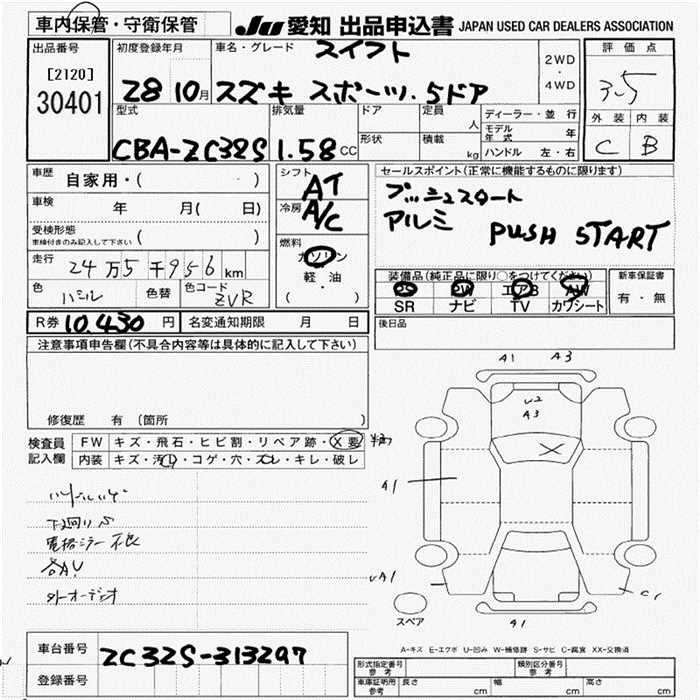 車内保管・守衛保管
JU 愛知 出品申込書 JAPAN USED CAR DEALERS ASSOCIATION
出品番号
[2120]
30401
初度登録年月
28 10月
車名・グレード
スイフト
スズキ スポーツ. 5ドア
2WD
・
4WD
評価点
3.5
外装 内装
C B
型式
CBA-ZC32S
排気量
1.58 CC
ドア
形状
定員 人
積載 kg
ディーラー・並行
モデル年式 年
ハンドル 左・右
車歴
自家用・( )
車検
年 月( 日)
受検形態
車検付きのみ記入して下さい ( )
走行
24万5千956km
色
パール
色替
色コード
ZVR
シフト
AT
冷房
A/C
燃料
ガソリン
・
軽・油
( )
セールスポイント(正常に機能するものに限ります)
プッシュスタート
アルミ
PUSH START
装備品(純正品に限り○をつけてください)
PS PW エアB AW
SR ナビ TV カワシート
新車保証書
有・無
R券 10.430 円
名変通知期限 月 日
後日品
注意事項申告欄(不具合内容等は具体的に記入して下さい)
修復歴 有 (箇所 )
検査員
記入欄
FW キズ・飛石・ヒビ割・リペア跡・X要
内装 キズ・汚レ・コゲ・穴・スレ・キレ・破レ
下廻りS
電格ミラー不良
各AU
外オーディオ
A1 A3
U2
A3
A1
UA1
C1
A1
スペア
A-キズ E-エクボ U-凹み W-補修跡 S-サビ C-腐食 XX-交換済
車台番号
ZC32S-313297
登録番号
型式指定番号
参考
類別区分番号
参考
車庫証明用
参考
長さ cm
幅 cm
高さ cm